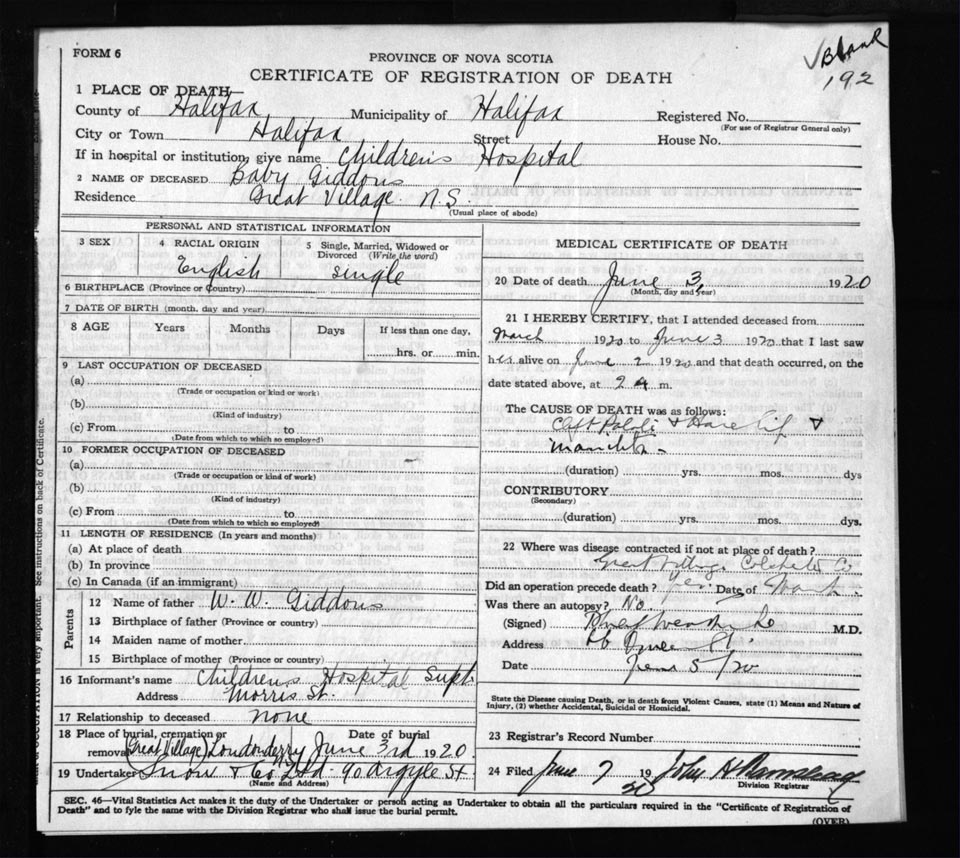 FORM 6
PROVINCE OF NOVA SCOTIA
Blank
192
CERTIFICATE OF REGISTRATION OF DEATH
1 PLACE OF DEATH
County of Halifax Municipality of Halifax Registered No.
(For use of Registrar General only)
City or Town Halifax Street House No.
If in hospital or institution, give name Children's Hospital
2 NAME OF DECEASED Baby Giddons
Residence Great Village N.S.
(Usual place of abode)
PERSONAL AND STATISTICAL INFORMATION
3 SEX 4 RACIAL ORIGIN English 5 Single, Married, Widowed or Divorced (Write the word) single
6 BIRTHPLACE (Province or Country)
7 DATE OF BIRTH (month, day and year)
8 AGE Years Months Days If less than one day,
hrs. or min.
9 LAST OCCUPATION OF DECEASED
(a)
(Trade or occupation or kind or work)
(b)
(Kind of industry)
(c) From to
(Date from which to which so employed)
10 FORMER OCCUPATION OF DECEASED
(a)
(Trade or occupation or kind of work)
(b)
(Kind of industry)
(c) From to
(Date from which to which so employed)
11 LENGTH OF RESIDENCE (In years and months)
(a) At place of death
(b) In province
(c) In Canada (if an immigrant)
Parents
12 Name of father W. W. Giddons
13 Birthplace of father (Province or country)
14 Maiden name of mother
15 Birthplace of mother (Province or country)
16 Informant's name Childrens Hospital Supt
Address Morris St.
17 Relationship to deceased none
18 Place of burial, cremation or removal (Great Village) Londonderry Date of burial June 3rd 1920
19 Undertaker Snow & Co Ltd 90 Argyle St.
(Name and Address)
MEDICAL CERTIFICATE OF DEATH
20 Date of death June 3, 1920
(Month, day and year)
21 I HEREBY CERTIFY, that I attended deceased from
March 1920 to June 3 1920 that I last saw
h alive on June 2 1920 and that death occurred, on the
date stated above, at 2 A m.
The CAUSE OF DEATH was as follows:
Cleft Palate & Hare Lip &
(duration) yrs. mos. dys
CONTRIBUTORY
(Secondary)
(duration) yrs. mos. dys.
22 Where was disease contracted if not at place of death?
Great Village Colchester Co
Did an operation precede death? yes. Date of March.
Was there an autopsy? No.
(Signed) M.D.
Address Queen St.
Date June 5/20
State the Disease causing Death, or in death from Violent Causes, state (1) Means and Nature of
Injury, (2) whether Accidental, Suicidal or Homicidal.
23 Registrar's Record Number
24 Filed June 7 1920 John H
Division Registrar
SEC. 46—Vital Statistics Act makes it the duty of the Undertaker or person acting as Undertaker to obtain all the particulars required in the "Certificate of Registration of
Death" and to fyle the same with the Division Registrar who shall issue the burial permit.
(OVER)
See instructions on back of Certificate.